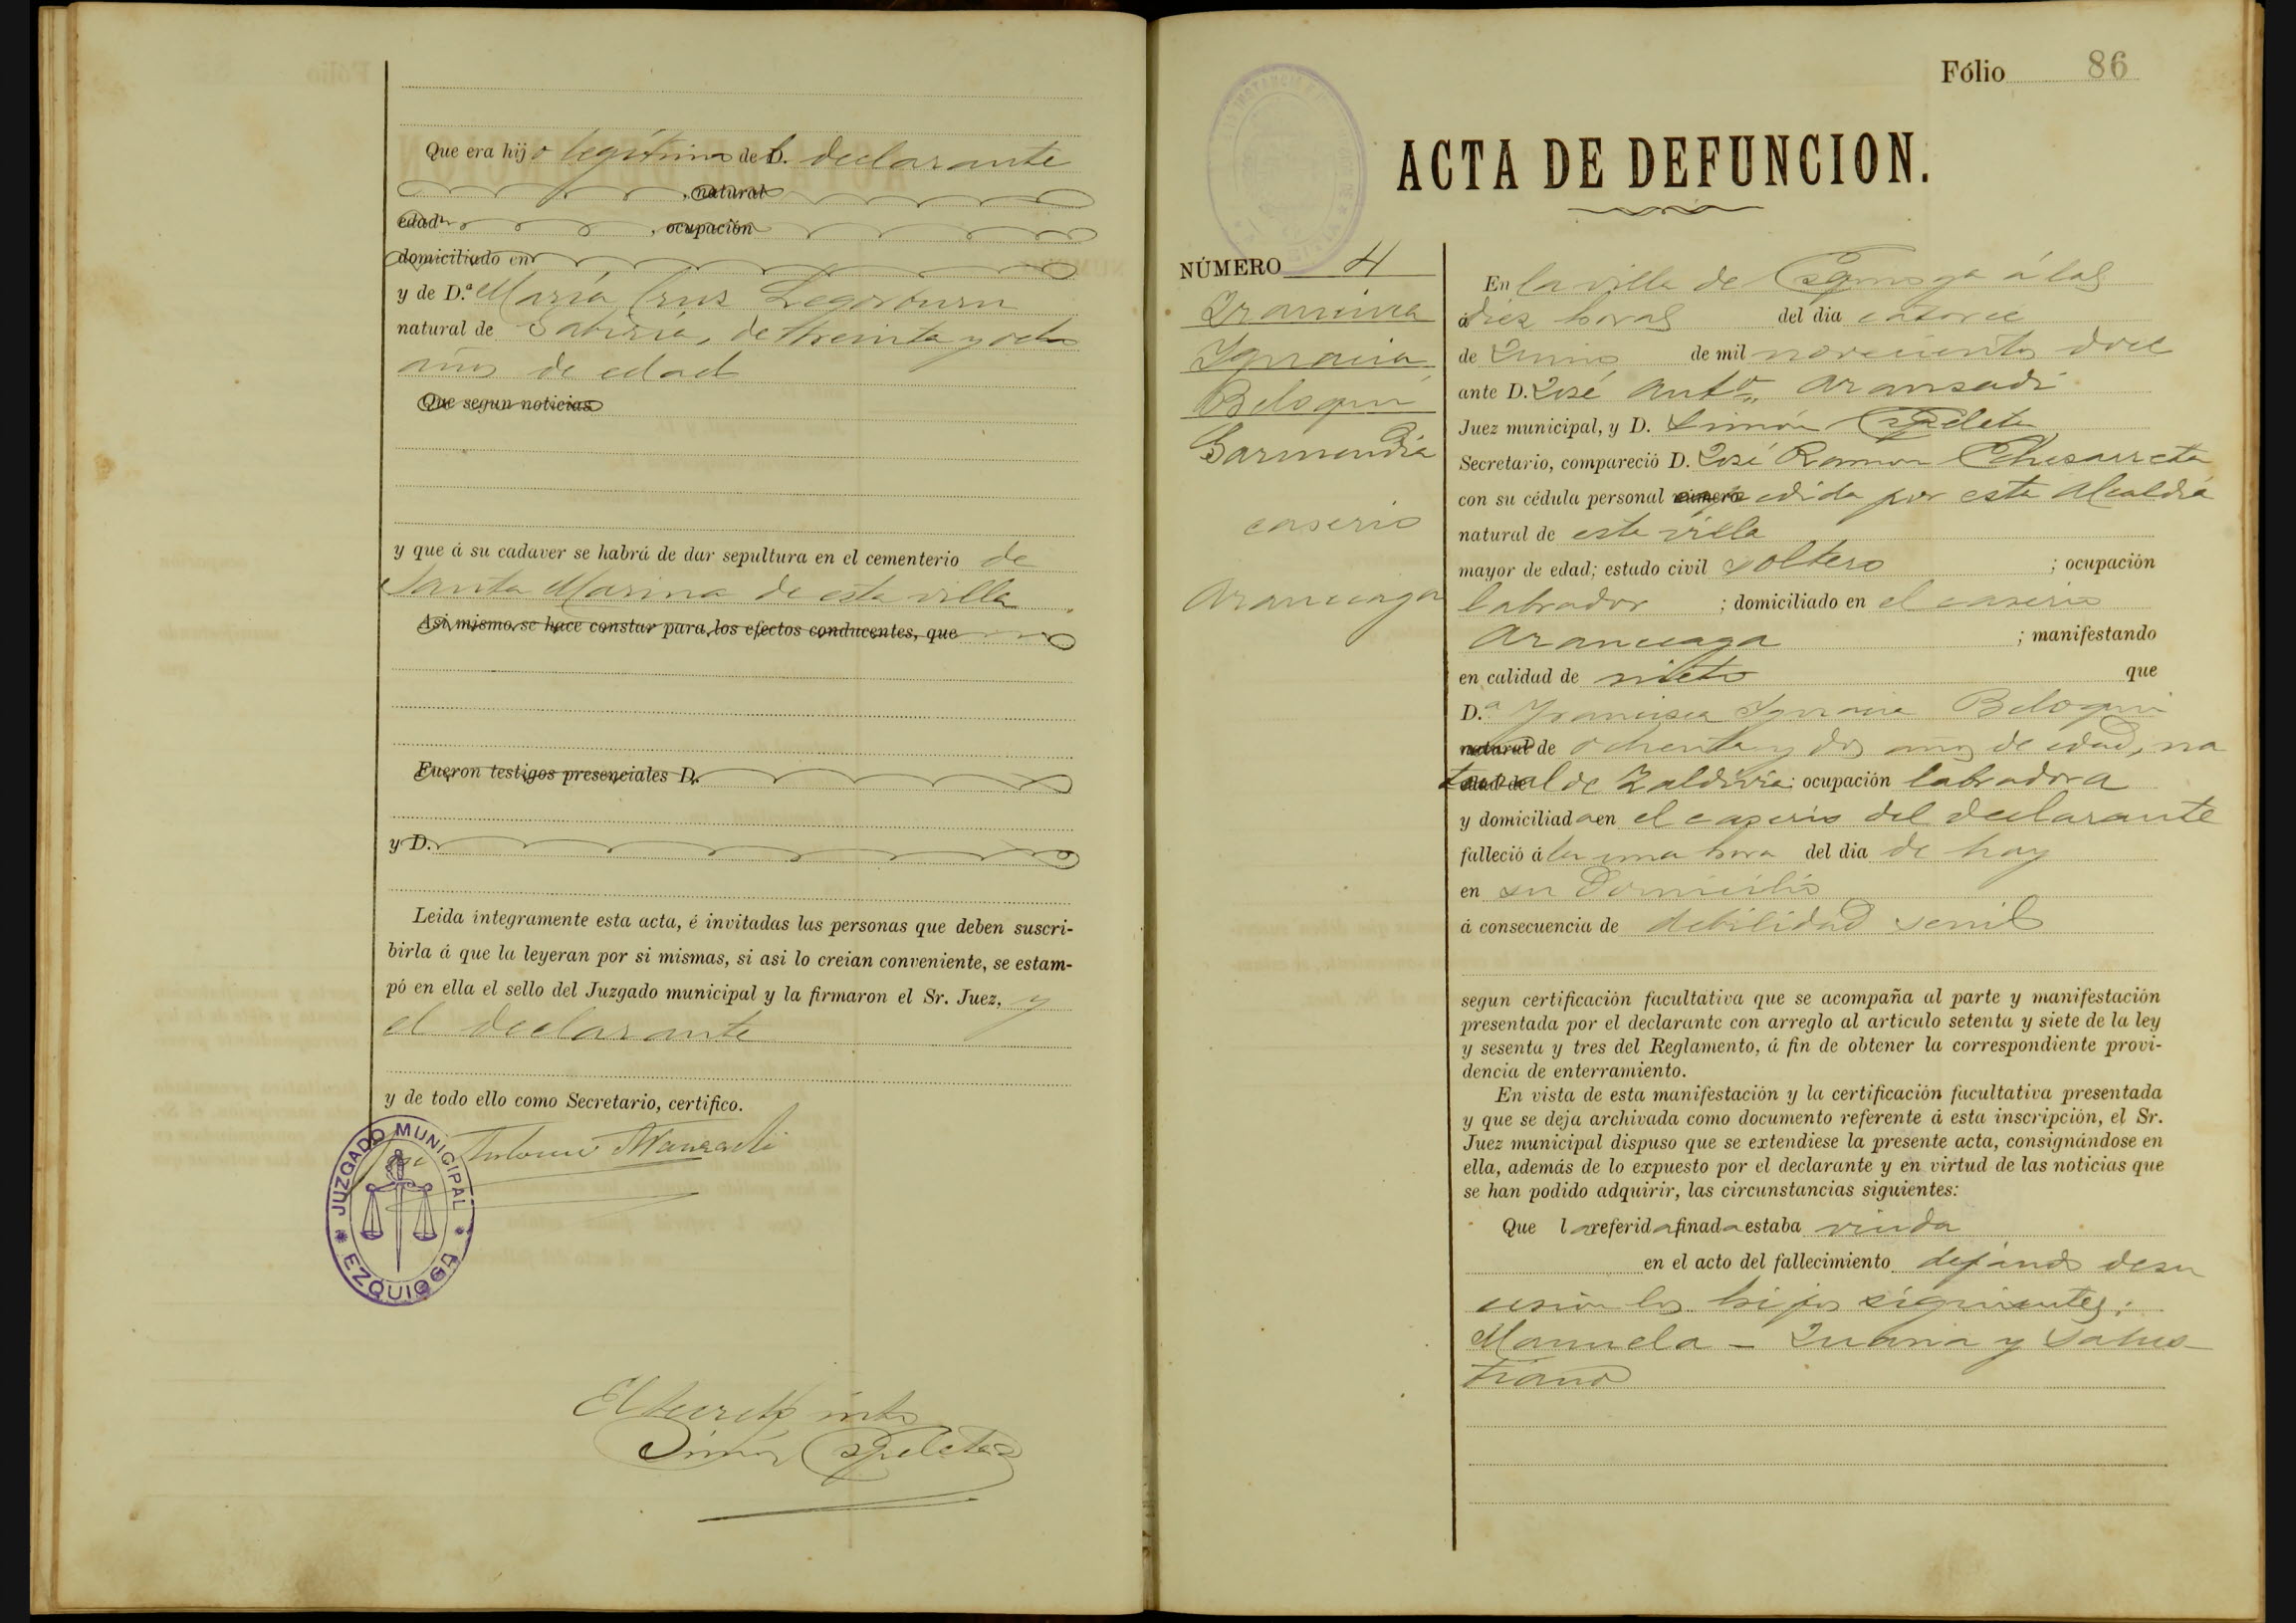 Que era hijo legítimo del declarante
, natural
edad , ocupación
domiciliado en
y de D.ª María Cruz Legorburu
natural de Gabiria, de treinta y ocho
años de edad
Que segun noticias
y que á su cadaver se habrá de dar sepultura en el cementerio de
Santa Marina de esta villa
Asi mismo se hace constar para los efectos conducentes, que
Fueron testigos presenciales D.
y D.
Leida integramente esta acta, é invitadas las personas que deben suscri-
birla á que la leyeran por si mismas, si asi lo creian conveniente, se estam-
pó en ella el sello del Juzgado municipal y la firmaron el Sr. Juez, y
el declarante
y de todo ello como Secretario, certifico.
José Antonio Aranzadi
JUZGADO MUNICIPAL
EZQUIOGA
El Secretº intº
Simón
Fólio 86
ACTA DE DEFUNCION.
NÚMERO 4
Francisca
Ignacia
Beloqui
Garmendia
caserio
Aranceaga
En la villa de Ezquioga á las
diez horas del dia catorce
de Junio de mil novecientos doce
ante D. José Antº Aransadi
Juez municipal, y D. Simón
Secretario, compareció D. José Ramon Echesarreta
con su cédula personal número expedida por esta Alcaldía
natural de esta villa
mayor de edad; estado civil soltero ; ocupación
labrador ; domiciliado en el caserio
Aranceaga ; manifestando
en calidad de nieto que
D.ª Francisca Ignacia Beloqui
natural de ochenta y dos años de edad, na
edad de tural de Zaldivia; ocupación labradora
y domiciliada en el caserio del declarante
falleció á la una hora del dia de hoy
en su domicilio
á consecuencia de debilidad senil
segun certificación facultativa que se acompaña al parte y manifestación
presentada por el declarante con arreglo al artículo setenta y siete de la ley
y sesenta y tres del Reglamento, á fin de obtener la correspondiente provi-
dencia de enterramiento.
En vista de esta manifestación y la certificación facultativa presentada
y que se deja archivada como documento referente á esta inscripción, el Sr.
Juez municipal dispuso que se extendiese la presente acta, consignándose en
ella, además de lo expuesto por el declarante y en virtud de las noticias que
se han podido adquirir, las circunstancias siguientes:
Que la referida finada estaba viuda
en el acto del fallecimiento dejando de su
cesión los hijos siguientes:
Manuela - Juana y Salus-
tiano